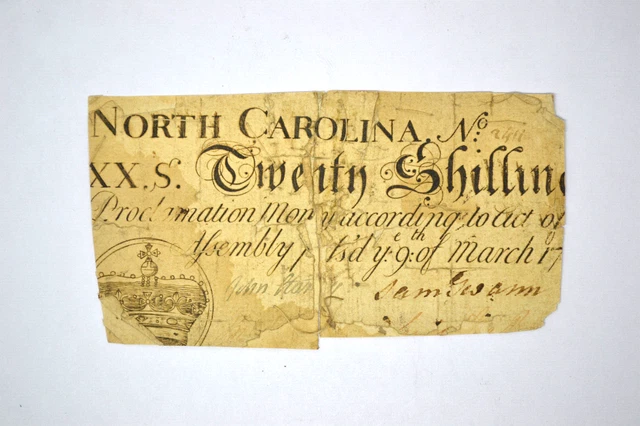 NORTH CAROLINA. No. 244
XX.S. Twenty Shilling
Proclamation Mon y according to Act of
ssembly p ts'd ye 9th of March 17
John Sam Swann